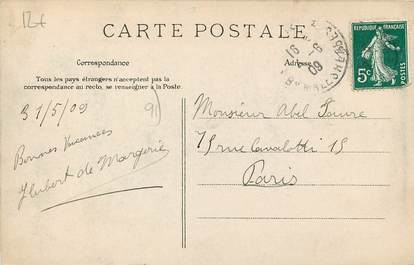 CARTE POSTALE
Correspondance
Adresse
Tous les pays étrangers n'acceptent pas la
correspondance au recto, se renseigner à la Poste
RÉPUBLIQUE FRANÇAISE
5c
POSTES
09
31/5/09
91
Bonnes Vacances
Hubert de Margerie
Monsieur Abel
15 rue Cavalotti 15
Paris